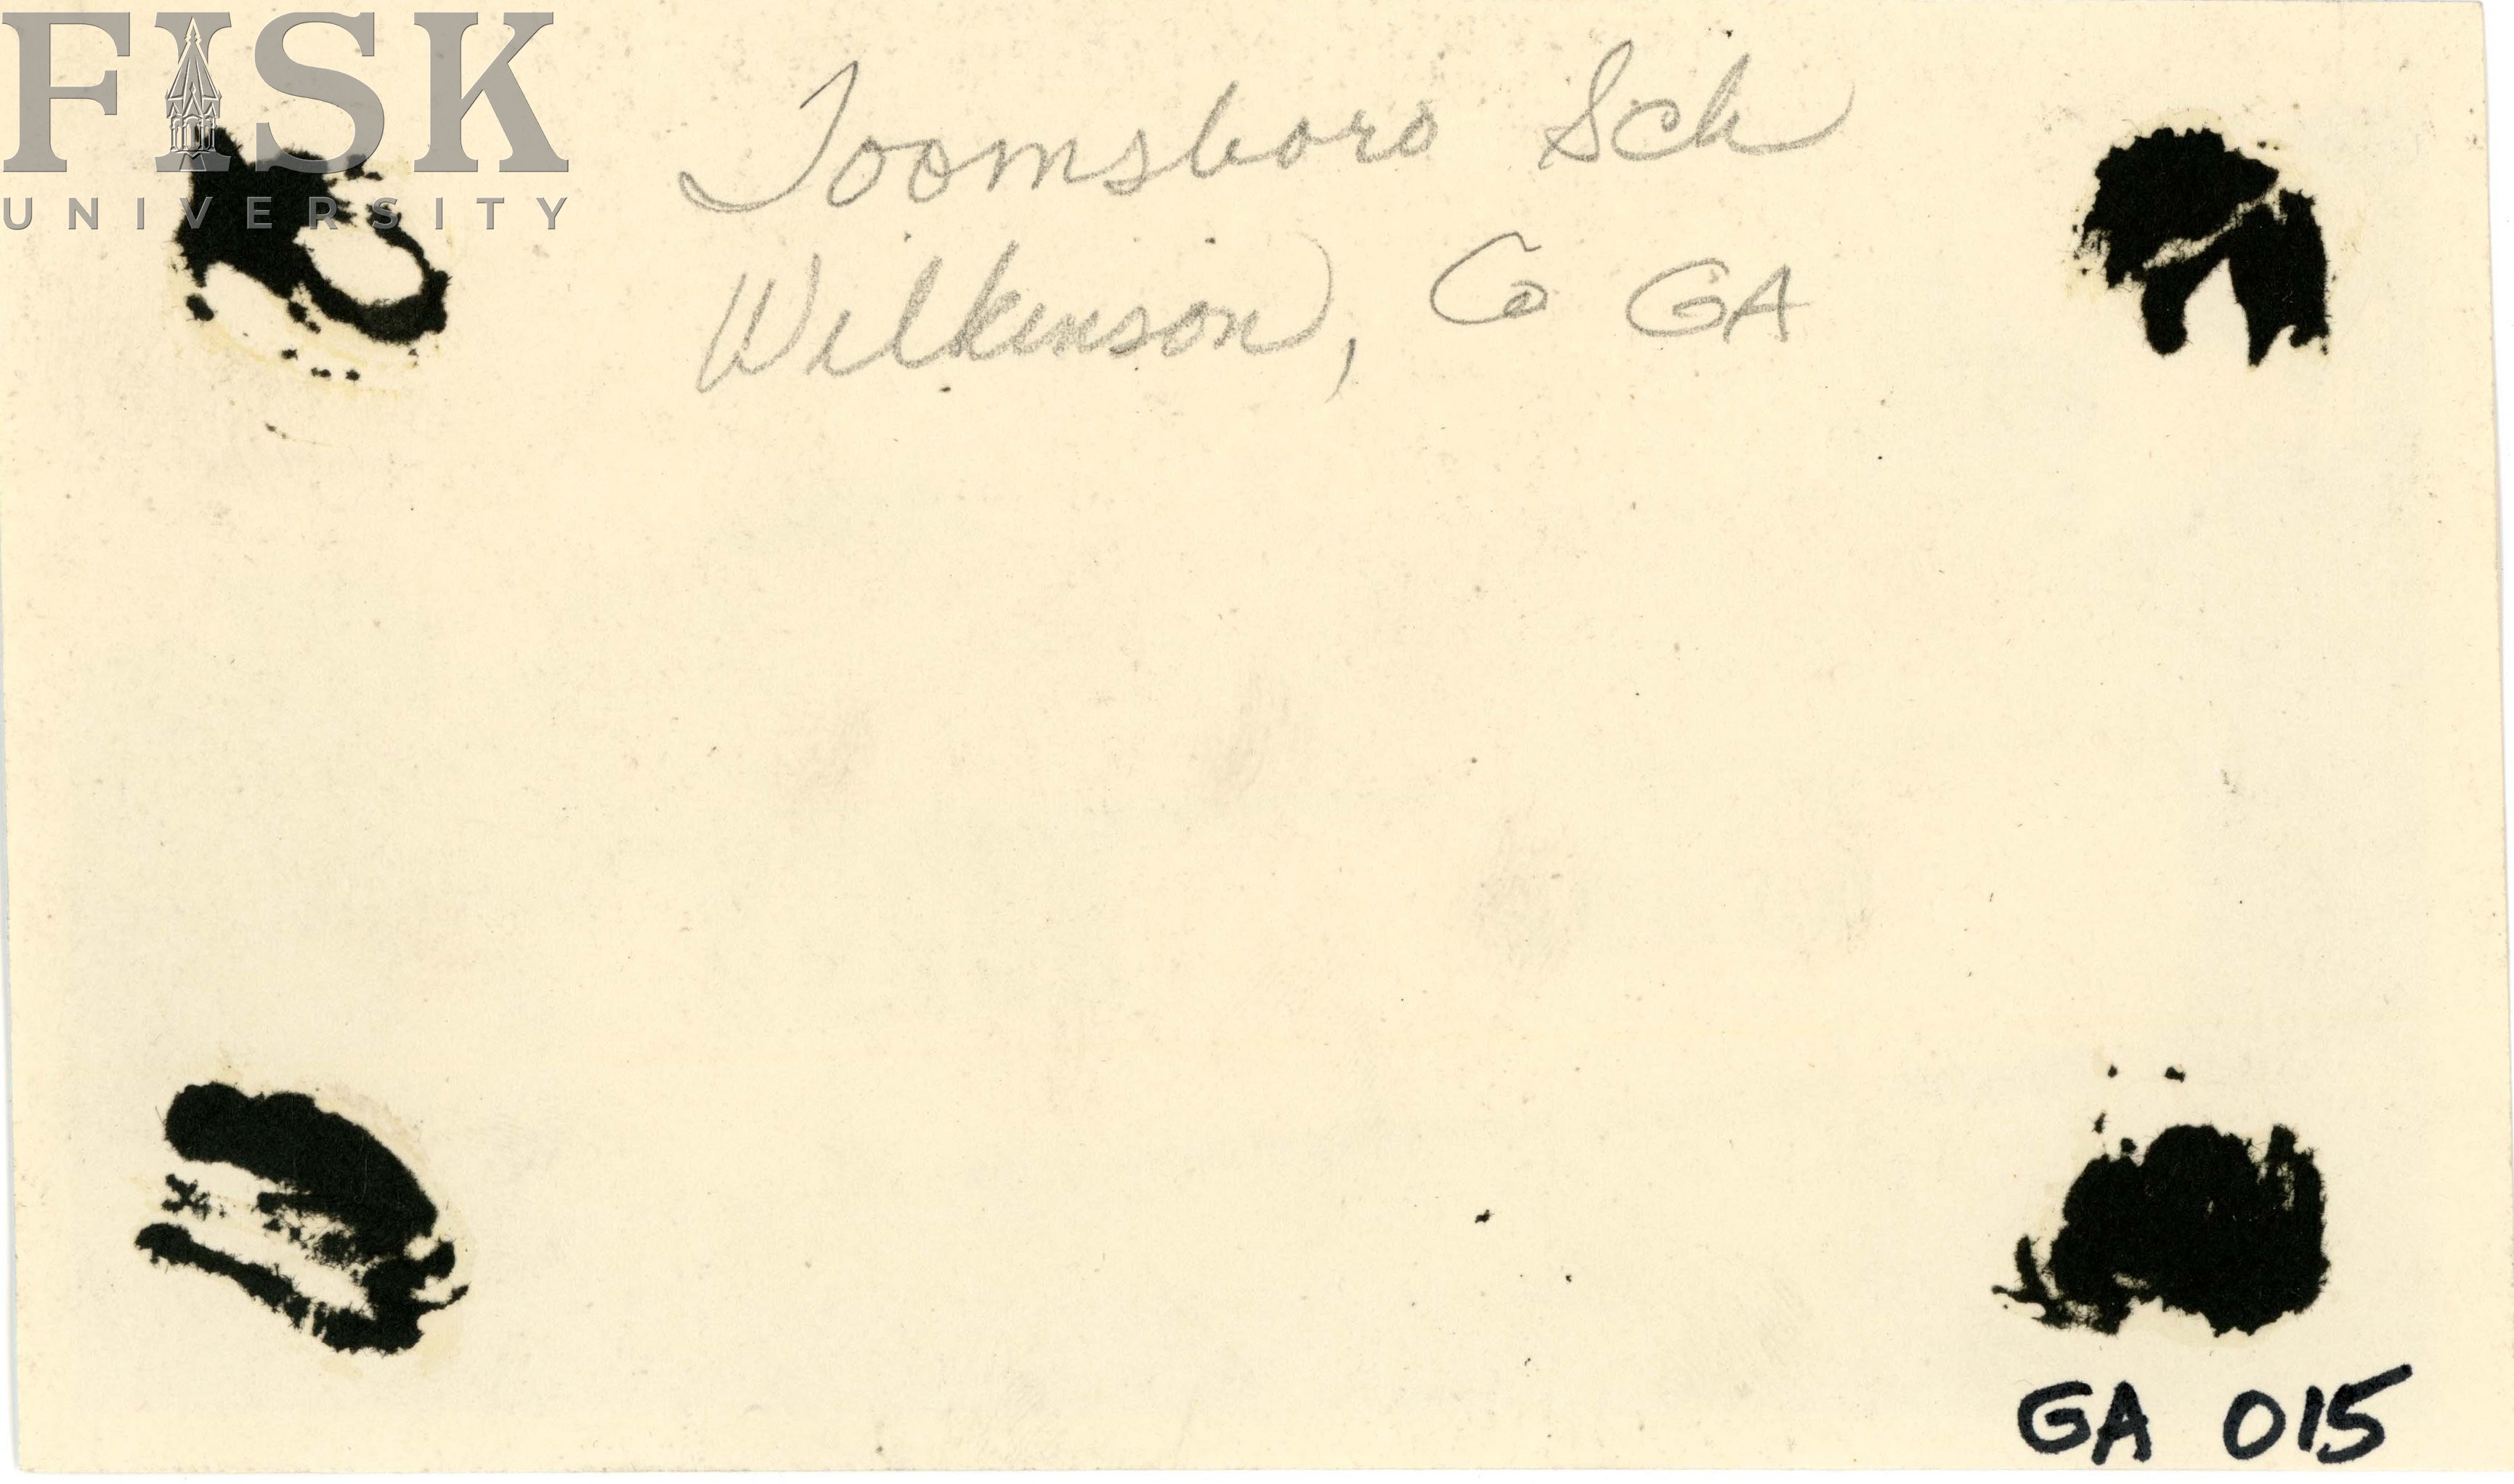 FISK
UNIVERSITY
Toomsboro Sch
Wilkinson, Co GA
GA 015